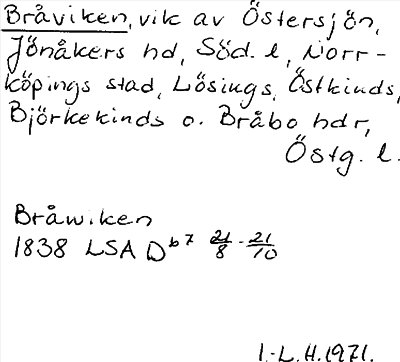 Bråviken, vik av Östersjön,
Jönåkers hd, Söd. l, Norr-
köpings stad, Lösings, Östkinds,
Björkekinds o. Bråbo hdr,
Östg. l.
Bråwiken
1838 LSA D b7 21/8 - 21/10
I.-L.H.1971.